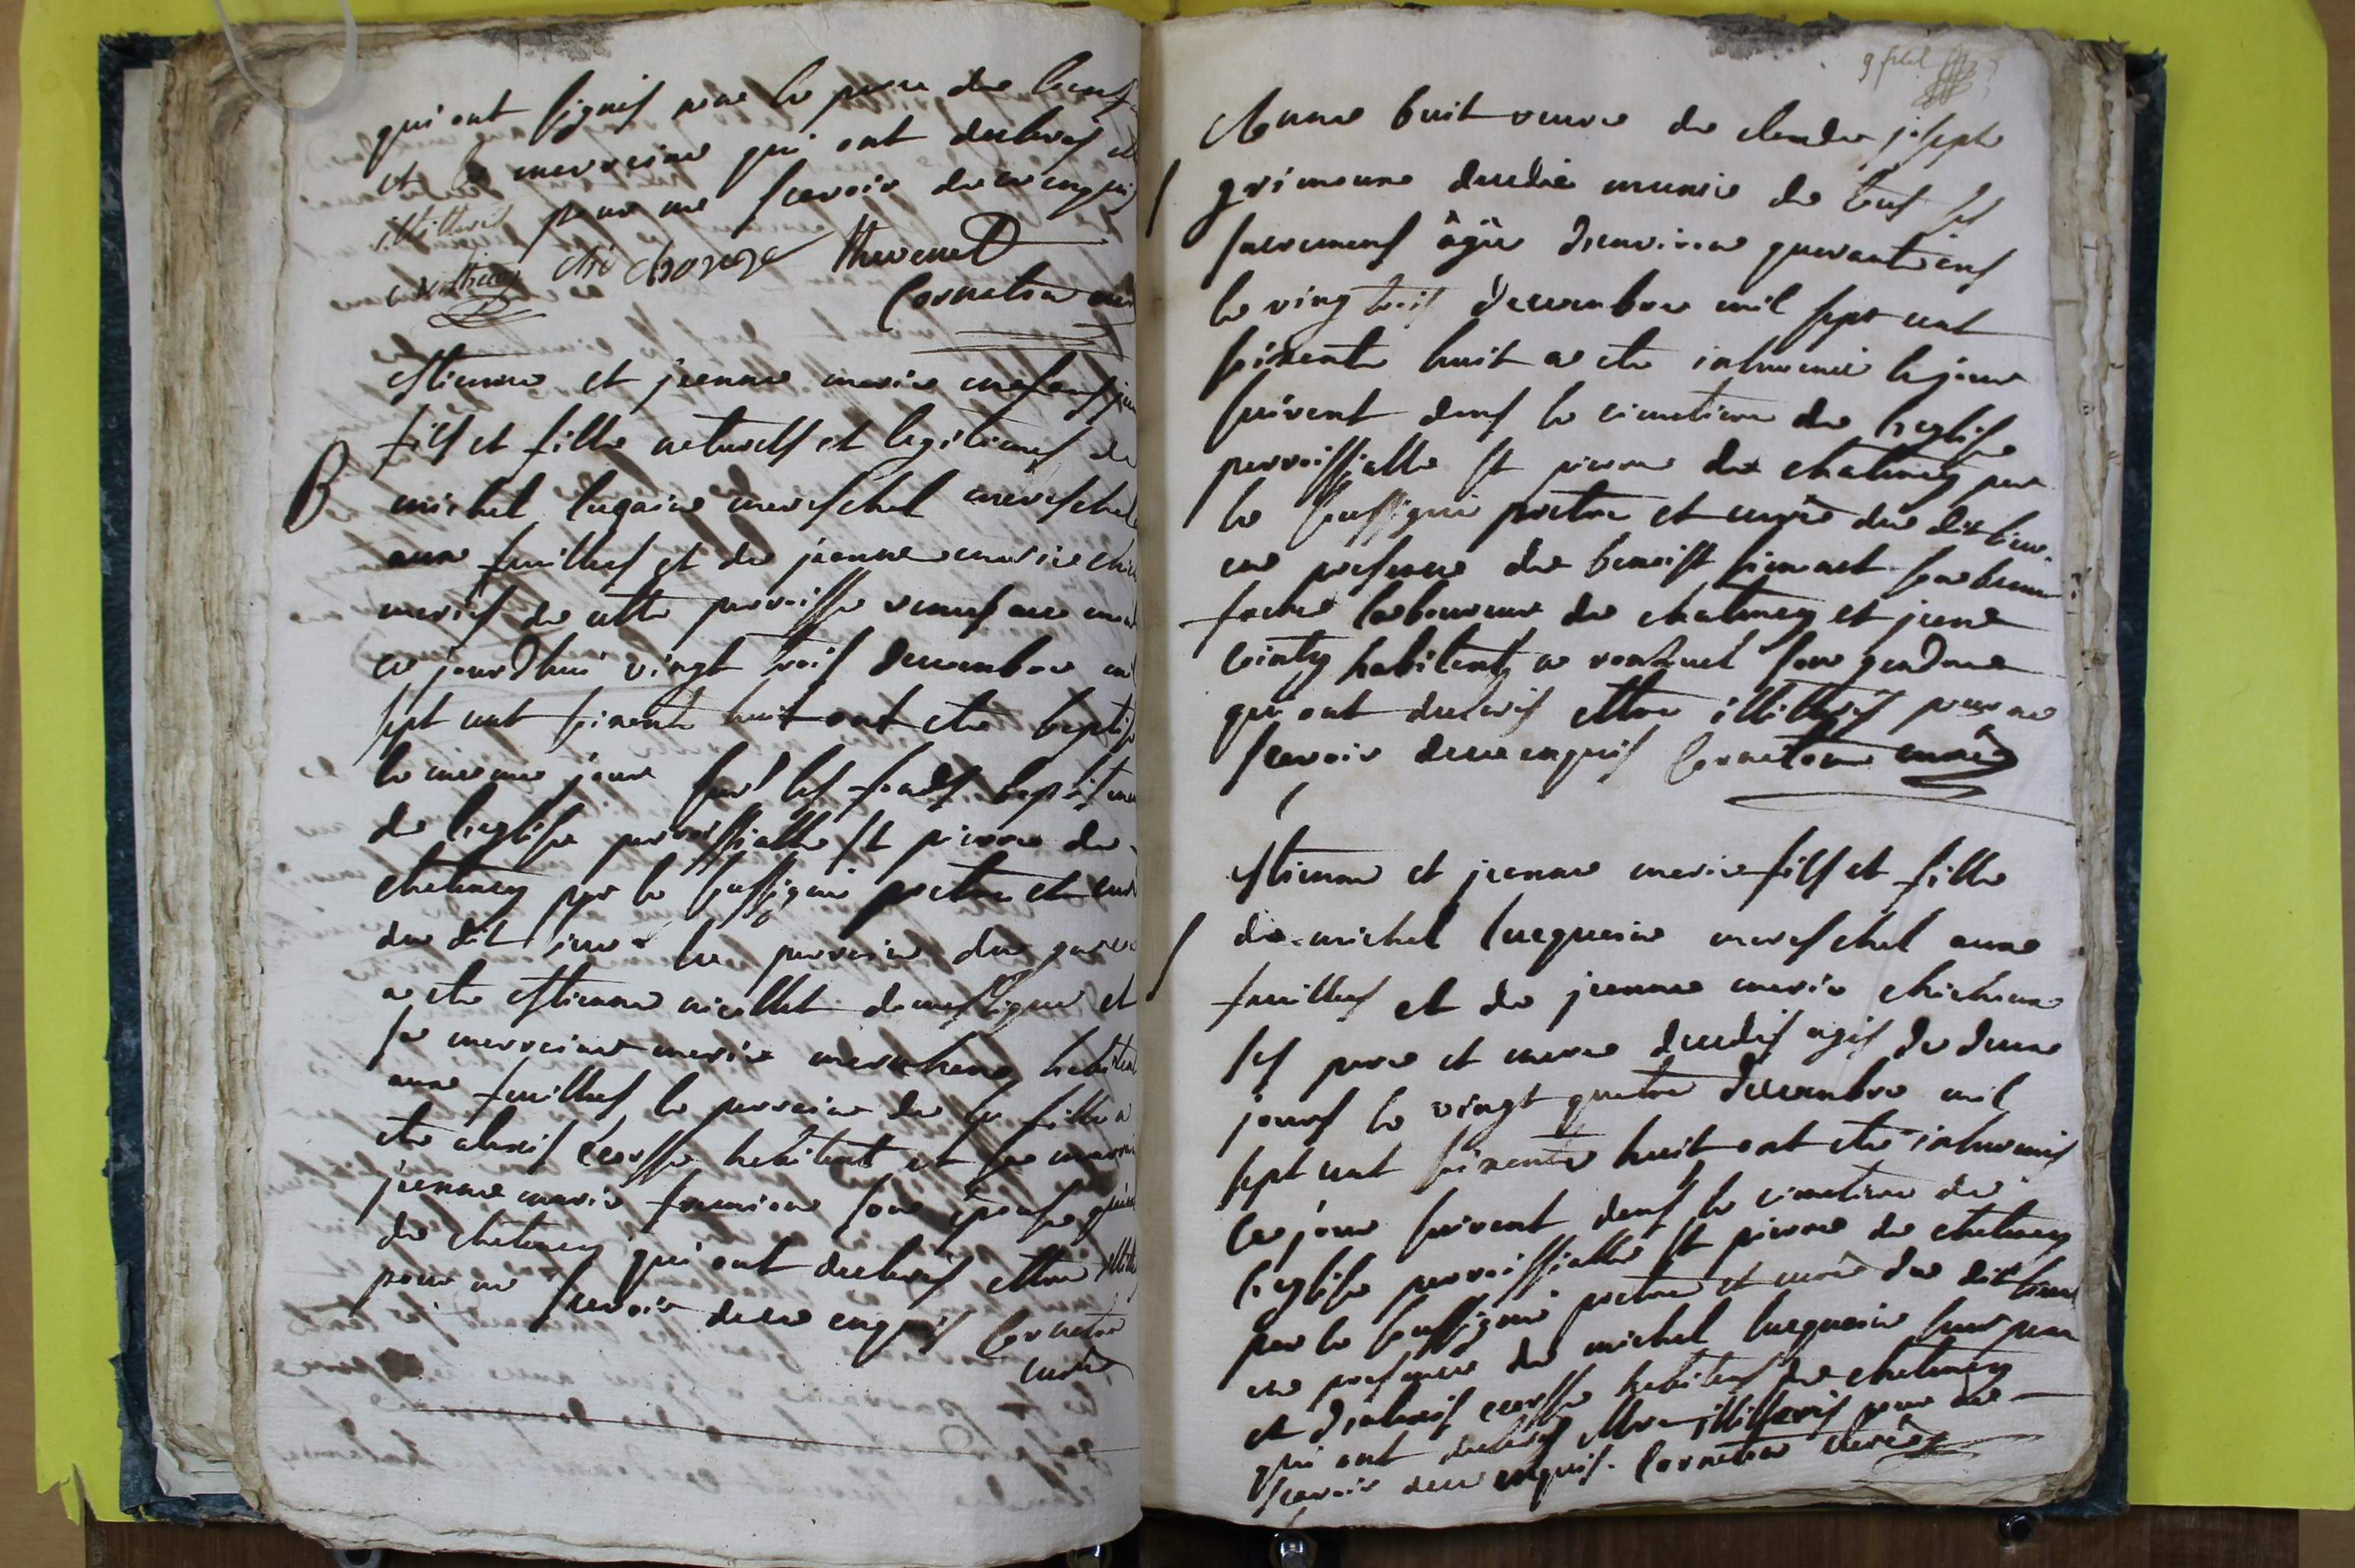 qui ont signés non le pere de l'enf
et la marraine qui ont declarés et
illitterés pour ne scavoir de ce enquis
thevenet
Cornaton curé
Estienne et jeanne marie
fils et fille naturels et legitimes de
B
michel luquain mareschal mareschal
aux feuilles et de jeanne marie chi
mariés de cette parroisse venus au mon
ce jourdhui vingt trois decembre mil
sept cent soixante huit ont ete baptisé
le meme jour sur les fonds baptismau
de l'eglise parroissialle St pierre de
chatenay par le soussigné pretre et curé
du dit lieu le parrain du garcon
a ete estienne nicollet domestique et
sa marraine marie habitant
aux feuilles le parrain de la fille a
ete alexis corsse habitant et sa marrai
jeanne marie son épouse
de chatenay qui ont declarés ettre illitte
pour ne scavoir de ce enquis Cornaton
curé
Anne buit veuve de claude joseph
grimonne decedée munie de tous ses
sacremens âgée d'environ quarante ans
le vingt trois decembre mil sept cent
soixante huit a ete inhumée le jour
suivant dans le cimetiere de l'eglise
parroissialle St pierre de chatenay par
le soussigné pretre et curé du dit lieu
en presence de benoist simonet son beau
frere laboureur de chatenay et jean
cointy habitant a son gendre
qui ont declarés ettre illitterés pour ne
scavoir de ce enquis Cornaton curé
Estienne et jeanne marie fils et fille
de michel luquain mareschal aux
feuilles et de jeanne marie chichoux
ses pere et mere decedés agés de deux
jours le vingt quatre decembre mil
sept cent soixante huit ont ete inhumés
le jour suivant dans le cimetiere de
l'eglise parroissialle St pierre de chatenay
par le soussigné pretre et curé du dit lieu
en presence de michel luquain leur pere
et d'alexis corsse habitans de chatenay
qui ont declarés ettre illitterés pour ne
scavoir de ce enquis. Cornaton curé